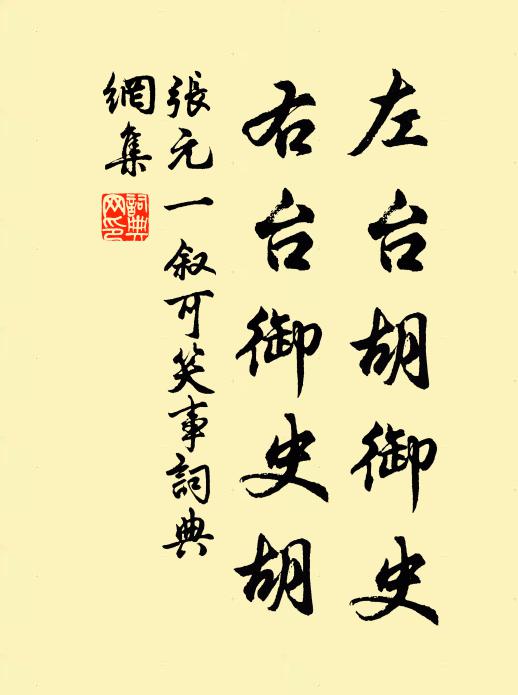 左台胡御史
右台御史胡
張元一叙可笑事詞典
網集
詞典
网印